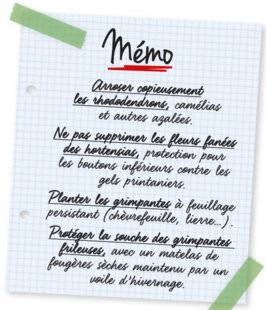 Mémo
Arroser copieusement
les rhododendrons, camélias
et autres azalées.
Ne pas supprimer les fleurs fanées
des hortensias, protection pour
les boutons inférieurs contre les
gels printaniers.
Planter les grimpantes à feuillage
persistant (chèvrefeuille, lierre...).
Protéger la souche des grimpantes
frileuses, avec un matelas de
fougères sèches maintenu par un
voile d'hivernage.